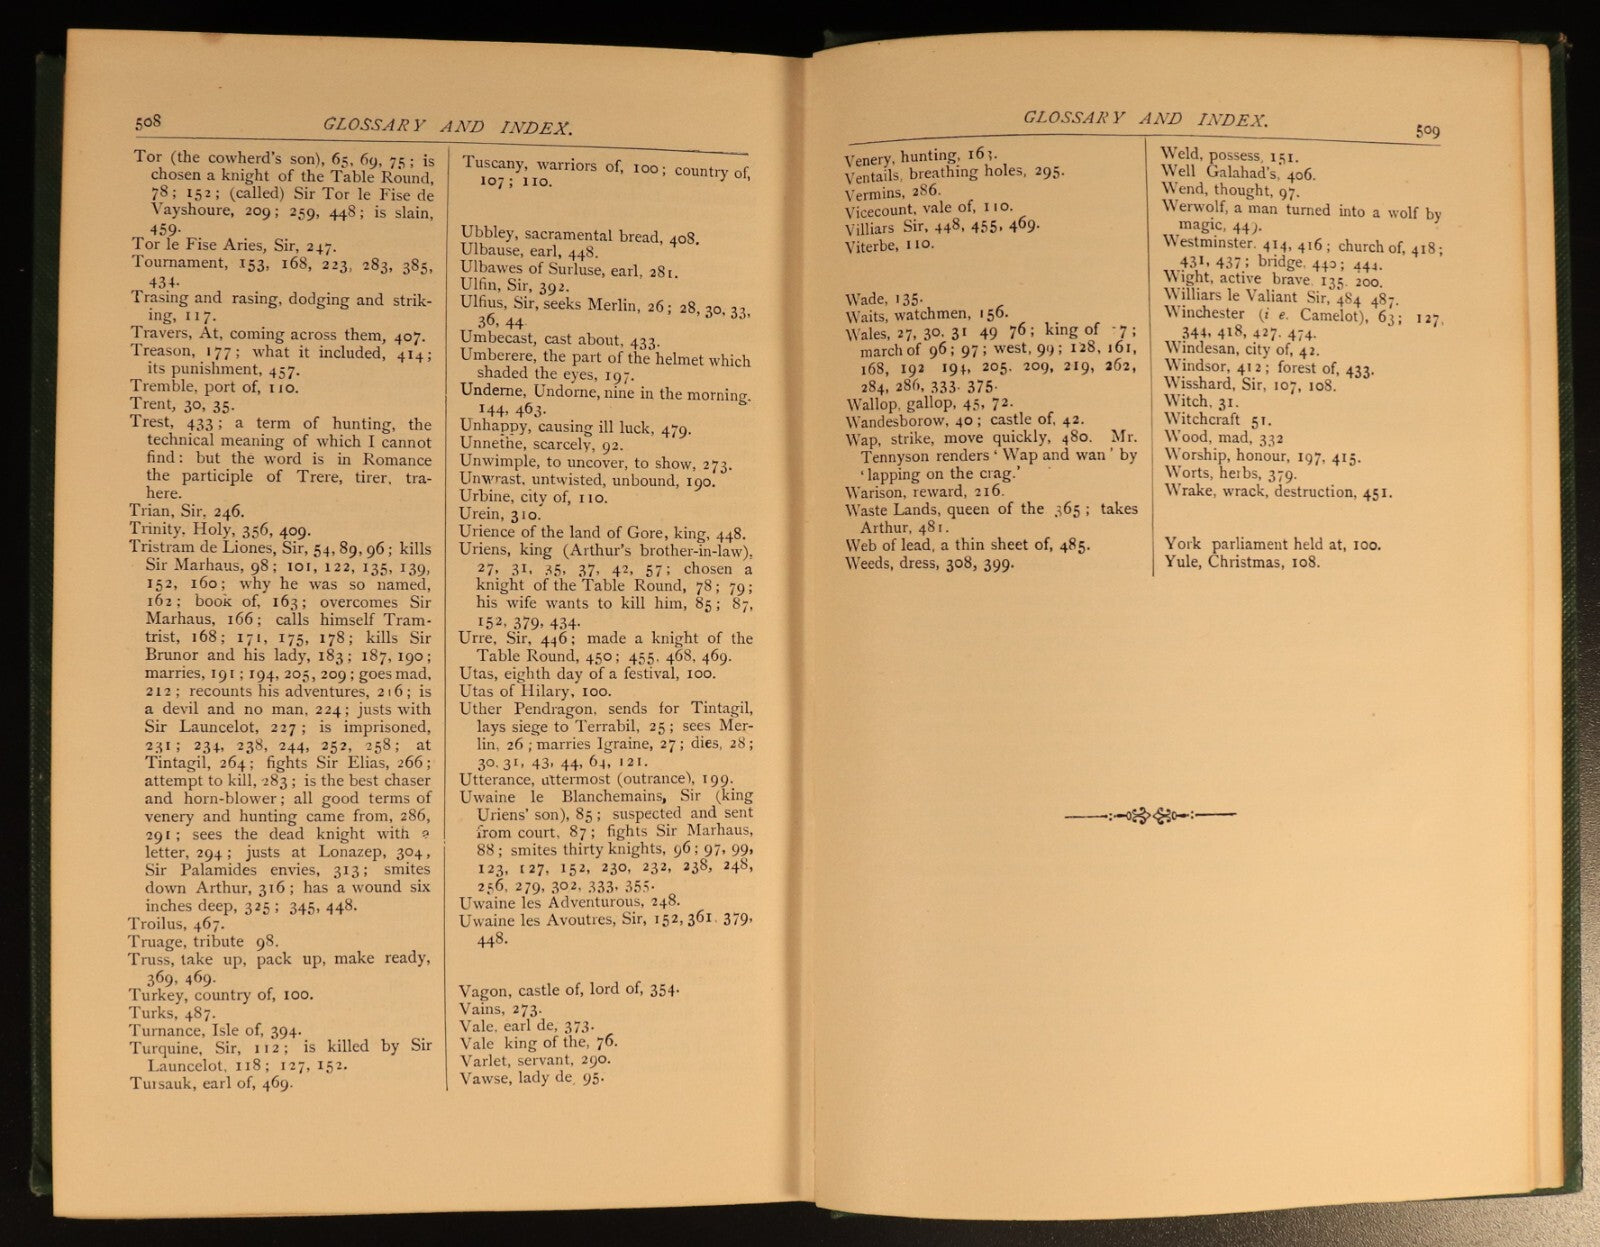 508
GLOSSARY AND INDEX.
Tor (the cowherd's son), 65, 69, 75; is
chosen a knight of the Table Round,
78; 152; (called) Sir Tor le Fise de
Vayshoure, 209; 259, 448; is slain,
459.
Tor le Fise Aries, Sir, 247.
Tournament, 153, 168, 223, 283, 385,
434.
Trasing and rasing, dodging and strik-
ing, 117.
Travers, At, coming across them, 407.
Treason, 177; what it included, 414;
its punishment, 457.
Tremble, port of, 110.
Trent, 30, 35.
Trest, 433; a term of hunting, the
technical meaning of which I cannot
find: but the word is in Romance
the participle of Trere, tirer, tra-
here.
Trian, Sir, 246.
Trinity, Holy, 356, 409.
Tristram de Liones, Sir, 54, 89, 96; kills
Sir Marhaus, 98; 101, 122, 135, 139,
152, 160; why he was so named,
162; book of, 163; overcomes Sir
Marhaus, 166; calls himself Tram-
trist, 168; 171, 175, 178; kills Sir
Brunor and his lady, 183; 187, 190;
marries, 191; 194, 205, 209; goes mad,
212; recounts his adventures, 216; is
a devil and no man, 224; justs with
Sir Launcelot, 227; is imprisoned,
231; 234, 238, 244, 252, 258; at
Tintagil, 264; fights Sir Elias, 266;
attempt to kill, 283; is the best chaser
and horn-blower; all good terms of
venery and hunting came from, 286,
291; sees the dead knight with a
letter, 294; justs at Lonazep, 304,
Sir Palamides envies, 313; smites
down Arthur, 316; has a wound six
inches deep, 325; 345, 448.
Troilus, 467.
Truage, tribute 98.
Truss, take up, pack up, make ready,
369, 469.
Turkey, country of, 100.
Turks, 487.
Turnance, Isle of, 394.
Turquine, Sir, 112; is killed by Sir
Launcelot, 118; 127, 152.
Tursauk, earl of, 469.
Tuscany, warriors of, 100; country of,
107; 110.
Ubbley, sacramental bread, 408.
Ulbause, earl, 448.
Ulbawes of Surluse, earl, 281.
Ulfin, Sir, 392.
Ulfius, Sir, seeks Merlin, 26; 28, 30, 33,
36, 44.
Umbecast, cast about, 433.
Umberere, the part of the helmet which
shaded the eyes, 197.
Underne, Undorne, nine in the morning.
144, 463.
Unhappy, causing ill luck, 479.
Unnethe, scarcely, 92.
Unwimple, to uncover, to show, 273.
Unwrast, untwisted, unbound, 190.
Urbine, city of, 110.
Urein, 310.
Urience of the land of Gore, king, 448.
Uriens, king (Arthur's brother-in-law),
27, 31, 35, 37, 42, 57; chosen a
knight of the Table Round, 78; 79;
his wife wants to kill him, 85; 87,
152, 379, 434.
Urre, Sir, 446; made a knight of the
Table Round, 450; 455, 468, 469.
Utas, eighth day of a festival, 100.
Utas of Hilary, 100.
Uther Pendragon, sends for Tintagil,
lays siege to Terrabil, 25; sees Mer-
lin, 26; marries Igraine, 27; dies, 28;
30, 31, 43, 44, 64, 121.
Utterance, uttermost (outrance), 199.
Uwaine le Blanchemains, Sir (king
Uriens' son), 85; suspected and sent
from court, 87; fights Sir Marhaus,
88; smites thirty knights, 96; 97, 99,
123, 127, 152, 230, 232, 238, 248,
256, 279, 302, 333, 355.
Uwaine les Adventurous, 248.
Uwaine les Avoutres, Sir, 152, 361, 379,
448.
Vagon, castle of, lord of, 354.
Vains, 273.
Vale, earl de, 373.
Vale king of the, 76.
Varlet, servant, 290.
Vawse, lady de, 95.
GLOSSARY AND INDEX.
509
Venery, hunting, 163.
Ventails, breathing holes, 295.
Vermins, 286.
Vicecount, vale of, 110.
Villiars Sir, 448, 455, 469.
Viterbe, 110.
Wade, 135.
Waits, watchmen, 156.
Wales, 27, 30, 31 49 76; king of 7;
march of 96; 97; west, 99; 128, 161,
168, 192 194, 205. 209, 219, 262,
284, 286, 333. 375.
Wallop, gallop, 45, 72.
Wandesborow, 40; castle of, 42.
Wap, strike, move quickly, 480. Mr.
Tennyson renders 'Wap and wan' by
'lapping on the crag.'
Warison, reward, 216.
Waste Lands, queen of the 365; takes
Arthur, 481.
Web of lead, a thin sheet of, 485.
Weeds, dress, 308, 399.
Weld, possess, 151.
Well Galahad's, 406.
Wend, thought, 97.
Werwolf, a man turned into a wolf by
magic, 449.
Westminster, 414, 416; church of, 418;
431, 437; bridge, 440; 444.
Wight, active brave, 135, 200.
Williars le Valiant Sir, 484 487.
Winchester (i e. Camelot), 63; 127,
344, 418, 427, 474.
Windesan, city of, 42.
Windsor, 412; forest of, 433.
Wisshard, Sir, 107, 108.
Witch, 31.
Witchcraft 51.
Wood, mad, 332
Worship, honour, 197, 415.
Worts, herbs, 379.
Wrake, wrack, destruction, 451.
York parliament held at, 100.
Yule, Christmas, 108.